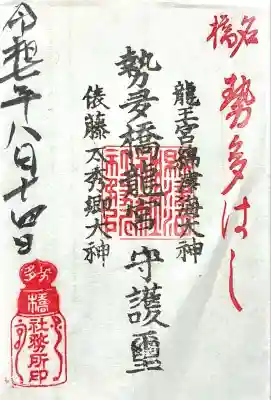 名橋
勢多はし
龍王宮秀郷社大神
勢多橋龍宮 守護璽
俵藤太秀郷大神
令和七年八月十四日
勢多
橋
社務所印